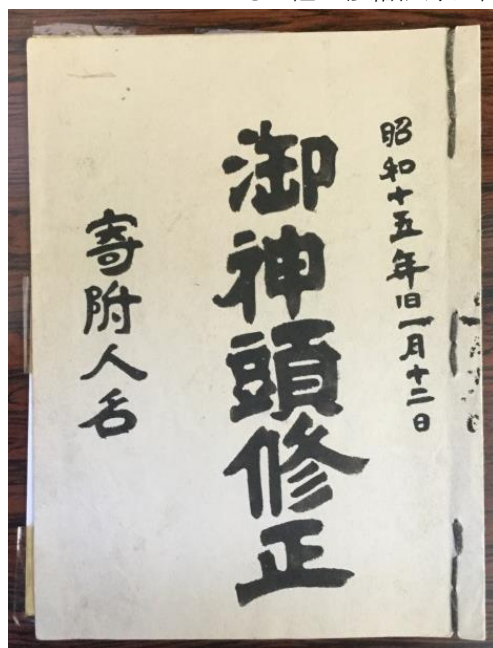 昭和十五年旧一月十二日
御神頭修正
寄附人名